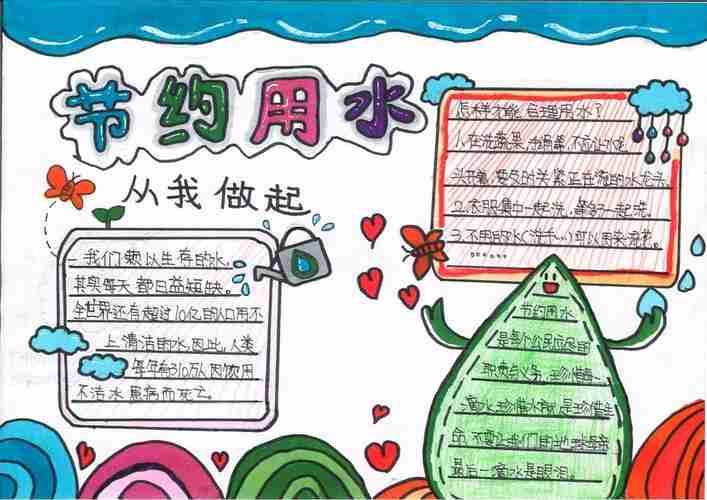 节约用水
从我做起
我们赖以生存的水,
其实每天都日益短缺。
全世界还有超过10亿的人口用不
上清洁的水,因此,人类
每年有310万人因饮用
不洁水患病而死亡。
怎样才能合理用水?
1.在洗蔬果,不应让水龙
头开着,要及时关紧正在流的水龙头。
2.衣服集中一起洗,一起洗。
3.不用的水(洗手…)可以用来浇花。
……
节约用水
是每个公民应尽的
职责与义务,珍惜每一
滴水,珍惜水就是珍惜生
命,不要让我们的地球母亲
最后一滴水是眼泪。